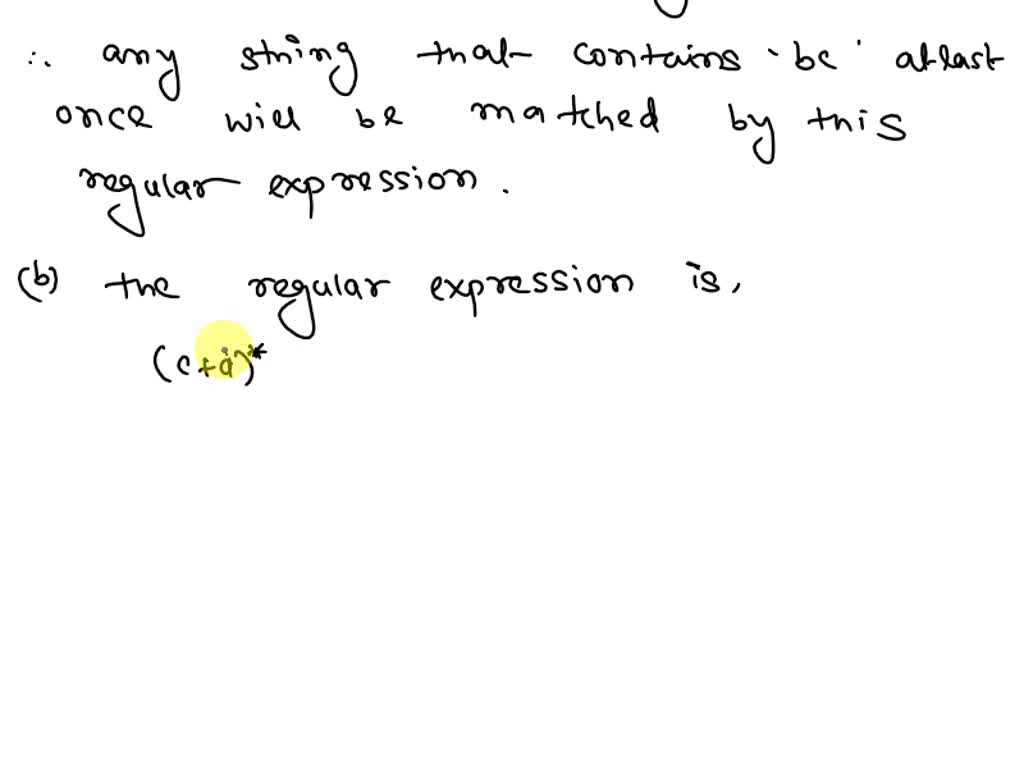 ∴ any string that contains 'bc' atlast
once will be matched by this
regular expression.
(b) the regular expression is,
(c+a)*